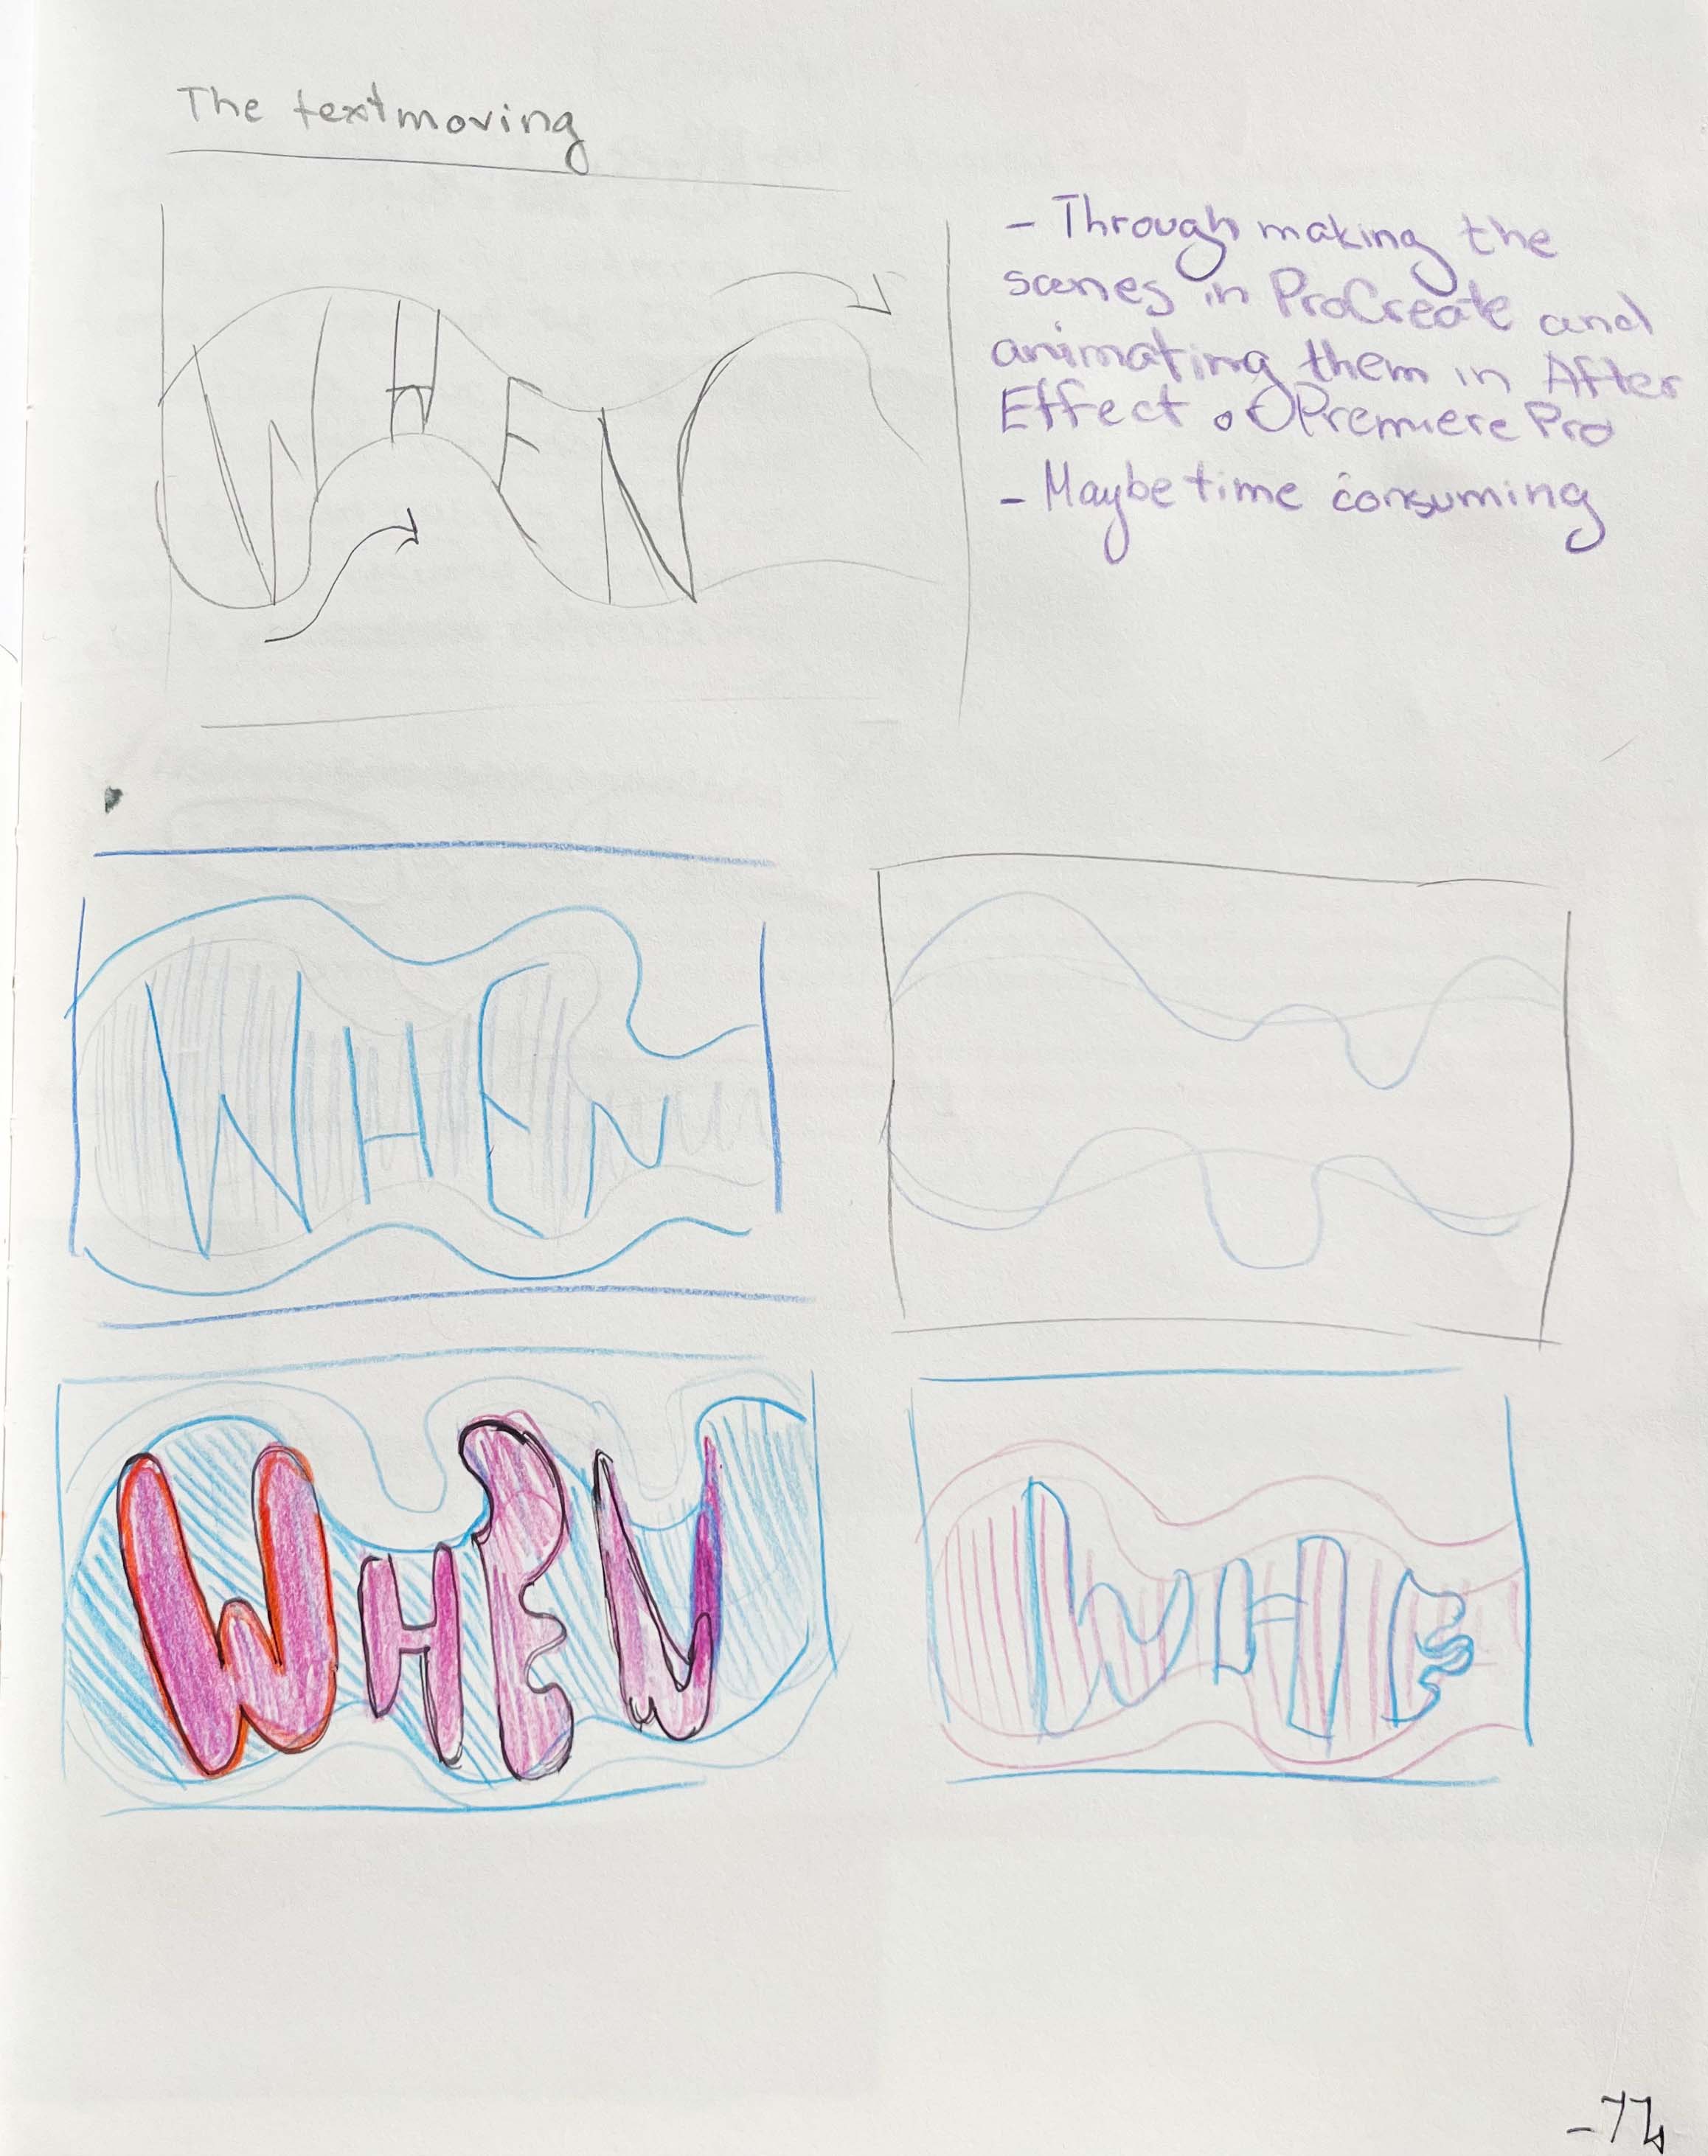 The textmoving
- Through making the
scenes in ProCreate and
animating them in After
Effect or Premiere Pro
- Maybe time consuming
WHEN
WHEN
WHEN
WHE